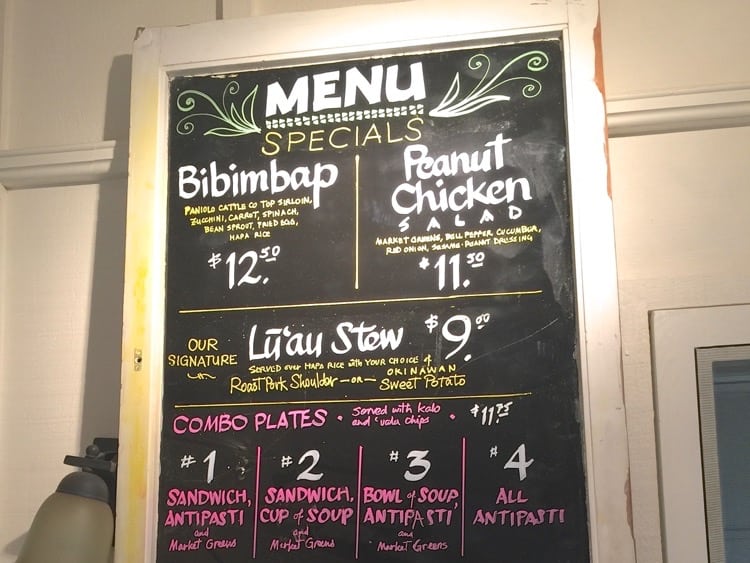 MENU
SPECIALS
Bibimbap
PANIOLO CATTLE CO TOP SIRLOIN,
ZUCCHINI, CARROT, SPINACH,
BEAN SPROUT, FRIED EGG,
HAPA RICE
$12.50
Peanut
Chicken
SALAD
MARKET GREENS, BELL PEPPER, CUCUMBER,
RED ONION, SESAME-PEANUT DRESSING
$11.50
OUR
SIGNATURE
Lū'au Stew $9.00
SERVED OVER HAPA RICE WITH YOUR CHOICE of
Roast Pork Shoulder -OR- OKINAWAN
Sweet Potato
COMBO PLATES • Served with kalo
and 'uala chips • $11.75
#1
SANDWICH,
ANTIPASTI
and
Market Greens
#2
SANDWICH,
CUP of SOUP
and
Market Greens
#3
BOWL of SOUP,
ANTIPASTI
and
Market Greens
#4
ALL
ANTIPASTI